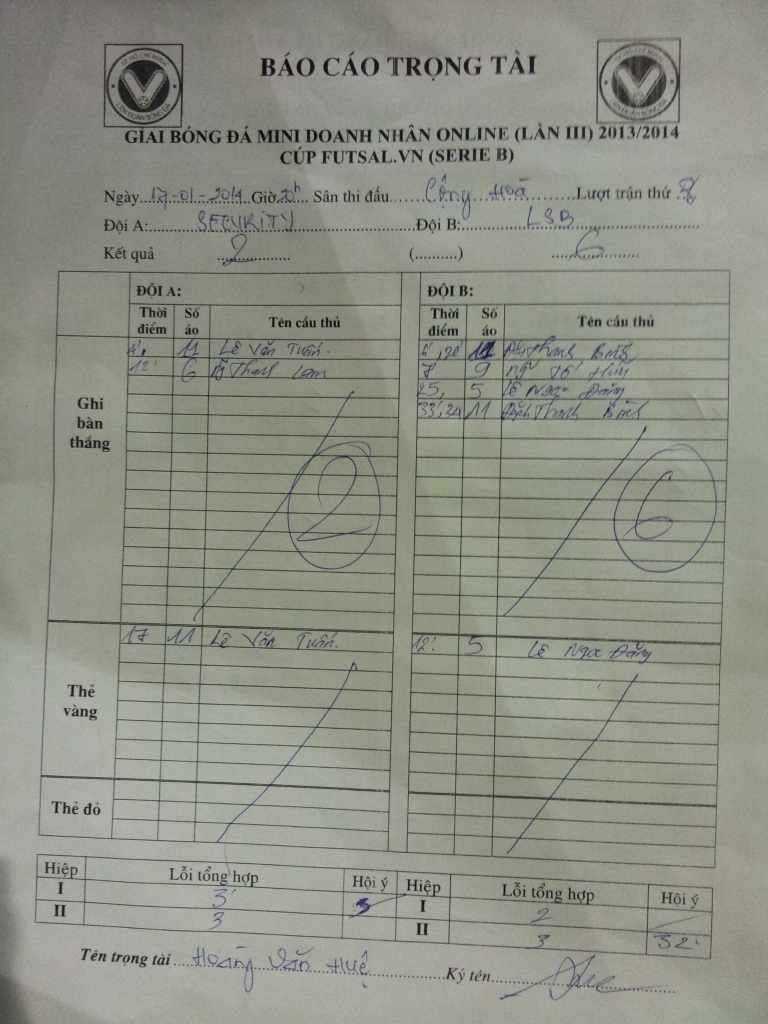 BÁO CÁO TRỌNG TÀI
GIẢI BÓNG ĐÁ MINI DOANH NHÂN ONLINE (LẦN III) 2013/2014
CÚP FUTSAL.VN (SERIE B)
Ngày 17-01-2014 Giờ 20h Sân thi đấu Cộng Hoà Lượt trận thứ
Đội A: SECURITY Đội B: LSB
Kết quả 2 (..........) 6
ĐỘI A: ĐỘI B:
Thời điểm Số áo Tên cầu thủ Thời điểm Số áo Tên cầu thủ
Ghi bàn thắng
11 Lê Văn Tuấn. 11 Thanh Bình
12' 6 Thanh 7 9 Huy
25, 5 Lê Ngọc Đăng
33', 34 11 Đinh Thanh Bình
2 6
Thẻ vàng
17 11 Lê Văn Tuấn. 12' 5 Lê Ngọc Đăng
Thẻ đỏ
Hiệp Lỗi tổng hợp Hội ý Hiệp Lỗi tổng hợp Hội ý
I 3 I 2
II 3 II 3 32'
Tên trọng tài Hoàng Văn Huệ Ký tên